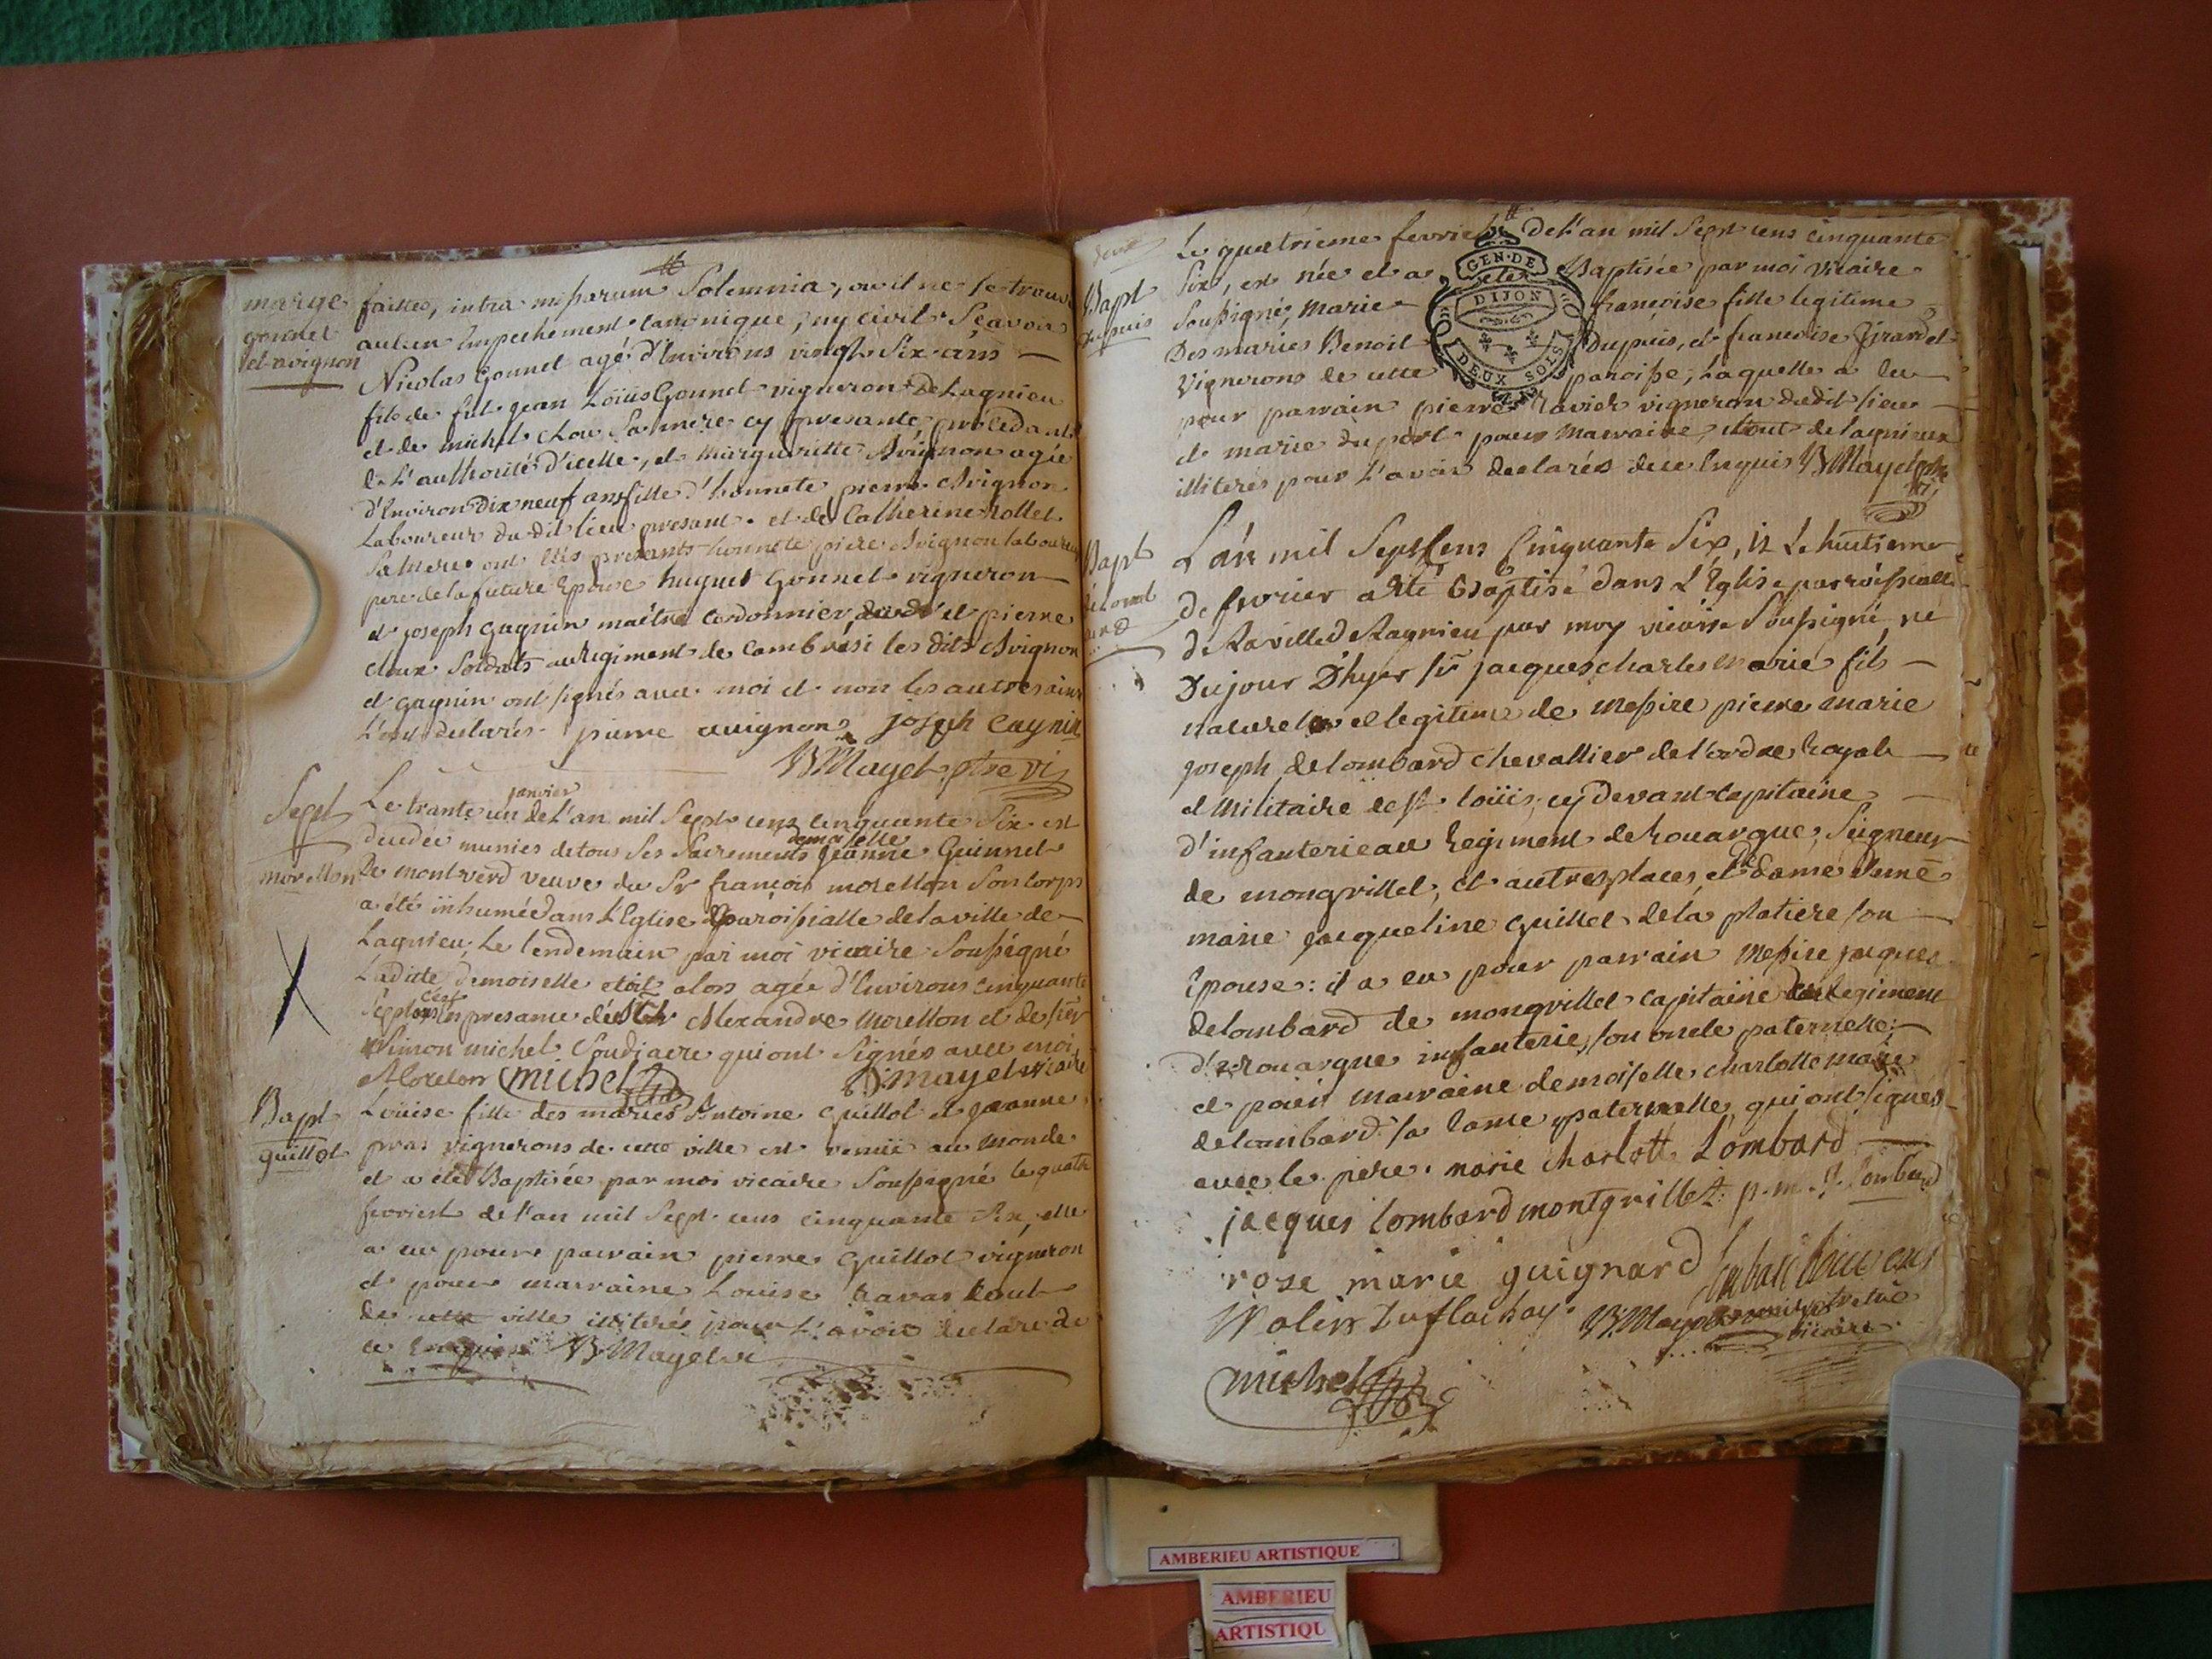 marge
gonnet
et avignon
faittes, intra missarum Solemnia, ou il ne se trouve
aucun Empechement canonique, ny civil. Sçavoir
Nicolas Gonnet agé d'Environs vingt Six ans —
fils de fut jean Loüis Gonnet vigneron de Lagnieu
et de michel Clou Sa mere cy presante, procedant
de L'authorité d'icelle, et Margueritte Avignon agée
d'Environ Dix neuf ans fille d'honnete pierre Avignon
Laboureur du dit lieu presant. et de Catherine rollet
Sa Mere ont étés presants honnete piere Avignon laboureur
pere de la future Epouse huguet Gonnet vigneron —
et joseph gagnin maître Cordonnier, et pierre
cloux Soldats au regiment de Cambrési les dits Avignon
et gagnin ont signés avec moi et non les autres ainsi
L'ont declarés. pierre avignon joseph Cagnin
B Mayet ptre vi
Sept
morellon
Le trante un janvier de L'an mil Sept cens cinquante Six est
decedée munies de tous Ses Sacrements demoiselle jeanne Guinnet
De montverd veuve du Sr françois morellon Son Corps
a été inhumée dans L'Eglise paroissialle de la ville de —
Lagnieu, Le lendemain par moi vicaire Soussigné
Laditte demoiselle etoit alors agée d'Environs cinquante
Sept ans en presance de Alexandre Morellon et de sieur
Simon michel Soudiacre qui ont Signés avec moi
Morelon michel B mayet vicaire
Bapt
guillot
Loüise fille des mariés Antoine Guillot et jeanne
pras vignerons de cette ville est venüe au Monde
et a été Baptisée par moi vicaire Soussigné le quatre
fevrier de l'an mil Sept cens cinquante Six, elle
a eu pour parrain pierre Guillot vigneron
et pour marraine Louise ravas tout
de cette ville illiterés pour L'avoir declare de
ce Enquis B Mayet vi
Bapt
dupuis
Le quatrieme fevrier de L'an mil Sept cens cinquante
Six, est née et a été Baptisée par moi vicaire
Soussigné, Marie françoise fille legitime
Des maries Benoit Dupuis, et francoise Girardet
Vignerons de cette paroisse; Laquelle a eu —
pour parrain pierre ravier vigneron dudit lieu —
et marie du port pour Marraine, tout de lagnieux
illiterés pour L'avoir declarés de ce Enquis B Mayet ptre
vi
GEN·DE
DIJON
DEUX SOLS
Bapt
L'an mil Sept Cens Cinquante Six, et Le huitieme
de fevrier a été Baptisé dans L'Eglise parroissialle
de La ville de Lagnieu par moy vicaire Soussigné, né
Du jour D'hyer sr jacques charles Marie fils —
naturel et legitime de Messire pierre marie
joseph de lombard Chevallier de l'ordre Royale —
et Militaire de st loüis, cy devant Capitaine —
d'infanterie au Regiment de Rouargue, Seigneur
de mongrillet, et autres places, et de dame
marie jacqueline guillet de la platiere son —
Epouse: il a eu pour parrain Messire jacques
de lombard de mongrillet capitaine au Regiment
d'Rouargue infanterie, son oncle paternelle; —
et pour marraine demoiselle charlotte marie
de lombard sa tante paternelle, qui ont signés —
avec le pere. marie charlotte Lombard —
jacques lombard montgrillet p. m. j. lombard
rose marie guignard
michel
AMBERIEU ARTISTIQUE
AMBERIEU
ARTISTIQU